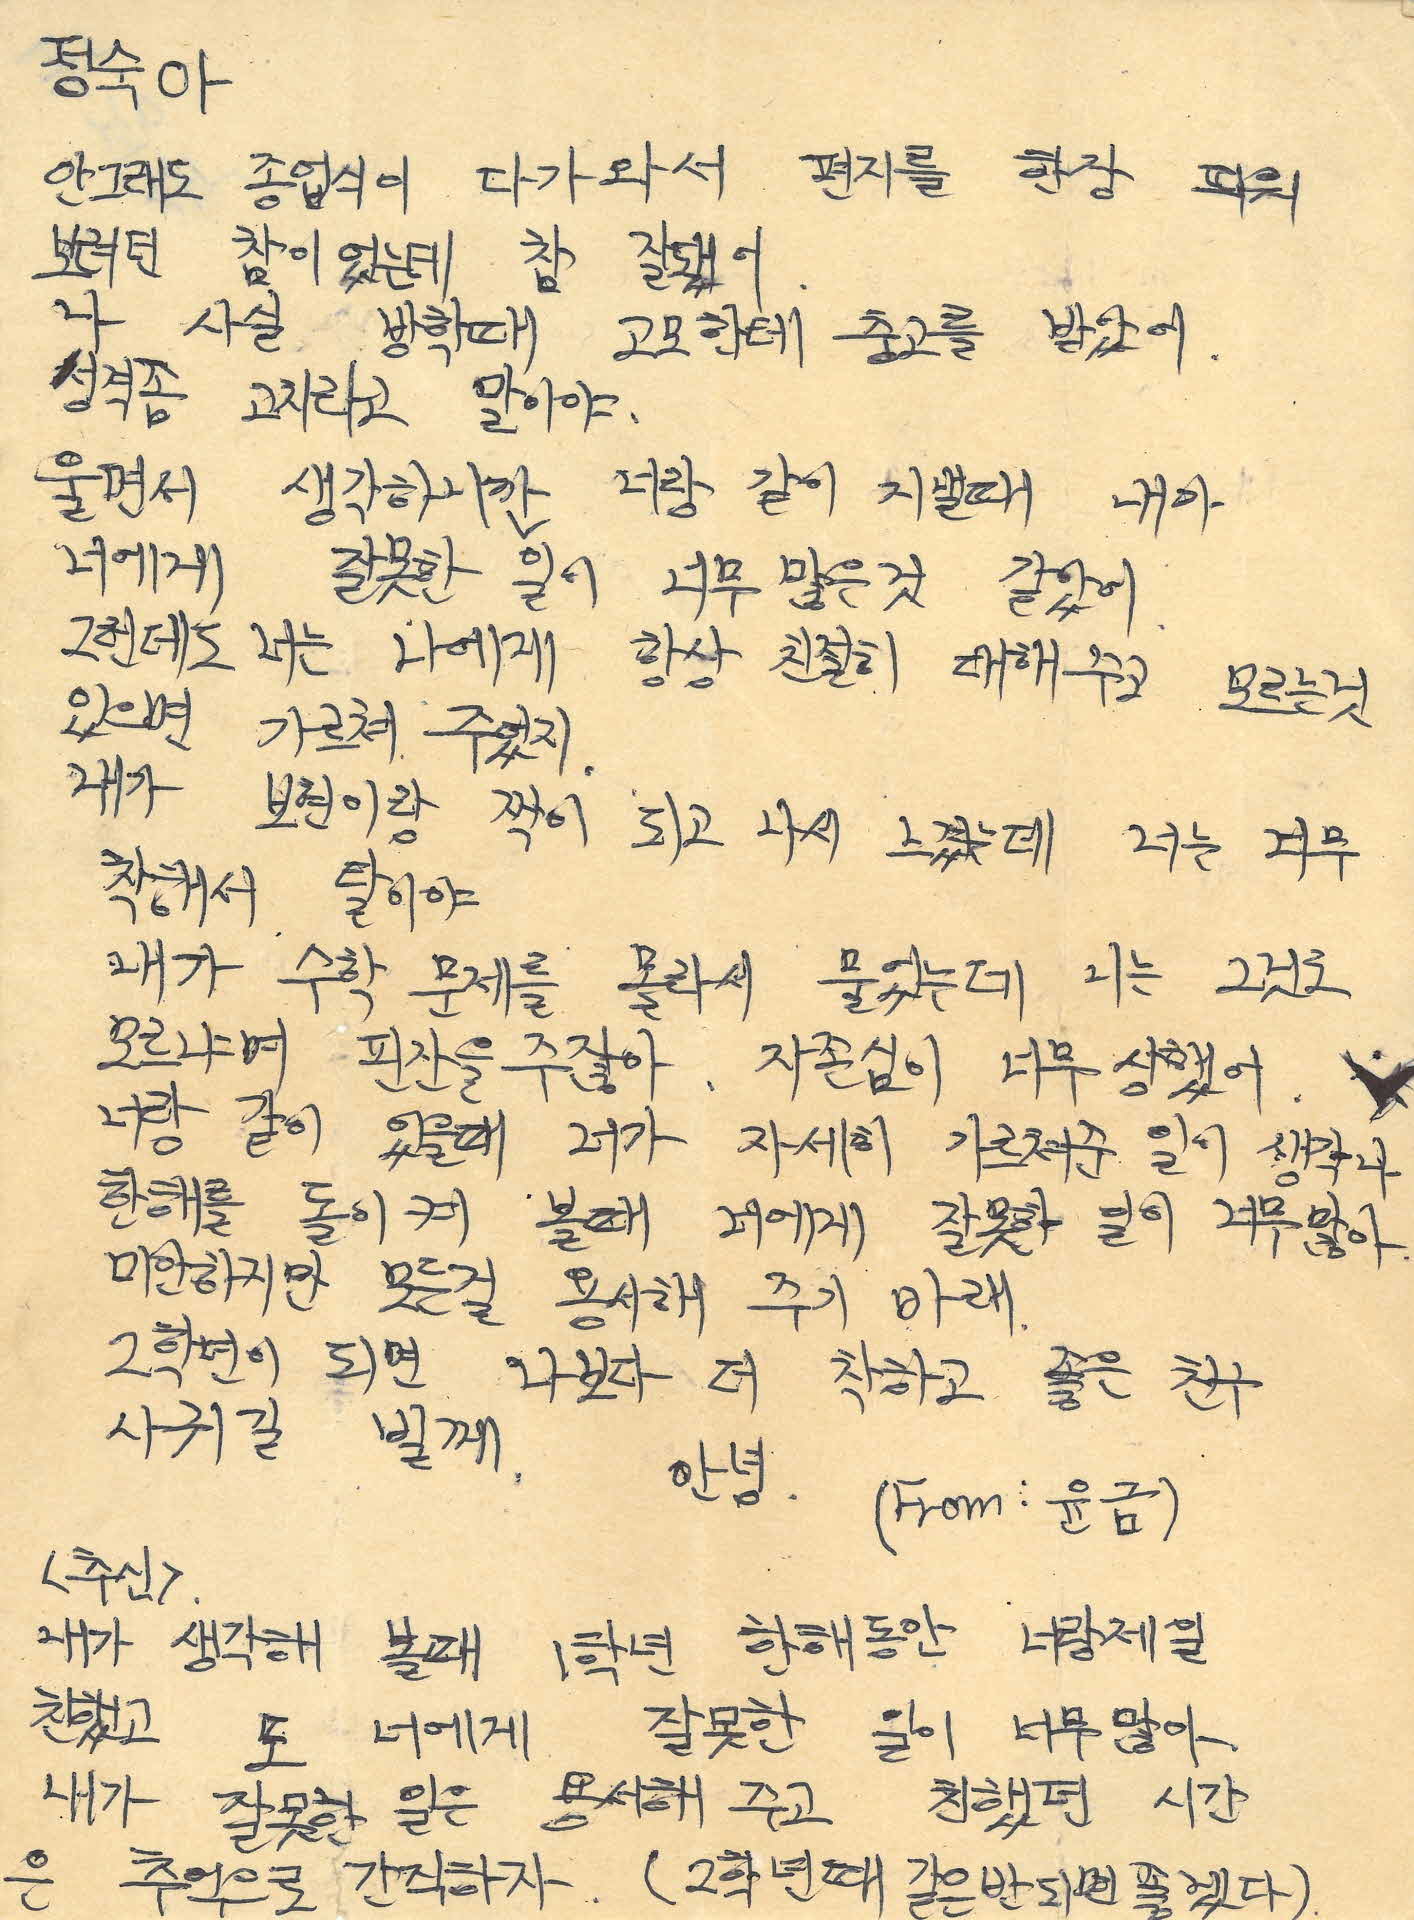 정숙아
안그래도 종업식이 다가와서 편지를 한장 띄워
보려던 참이었는데 참 잘됐어.
나 사실 방학때 고모한테 충고를 받았어.
성격좀 고치라고 말이야.
울면서 생각하니깐 너랑 같이 지낼때 내가
너에게 잘못한 일이 너무 많은것 같았어.
그런데도 너는 나에게 항상 친절히 대해주고 모르는것
있으면 가르쳐 주었지.
내가 보현이랑 짝이 되고 나서 느꼈는데 너는 너무
착해서 탈이야
내가 수학 문제를 몰라서 물었는데 너는 그것도
모르냐며 핀잔을 주잖아. 자존심이 너무 상했어.
너랑 같이 있을때 너가 자세히 가르쳐준 일이 생각나
한해를 돌이켜 볼때 너에게 잘못한 일이 너무많아.
미안하지만 모든걸 용서해 주기 바래.
2학년이 되면 나보다 더 착하고 좋은 친구
사귀길 빌께.
안녕.
(From: 윤금)
<추신>.
내가 생각해 볼때 1학년 한해동안 너랑제일
친했고 또 너에게 잘못한 일이 너무많아.
내가 잘못한 일은 용서해 주고 친했던 시간
은 추억으로 간직하자. (2학년때 같은반되면 좋겠다).